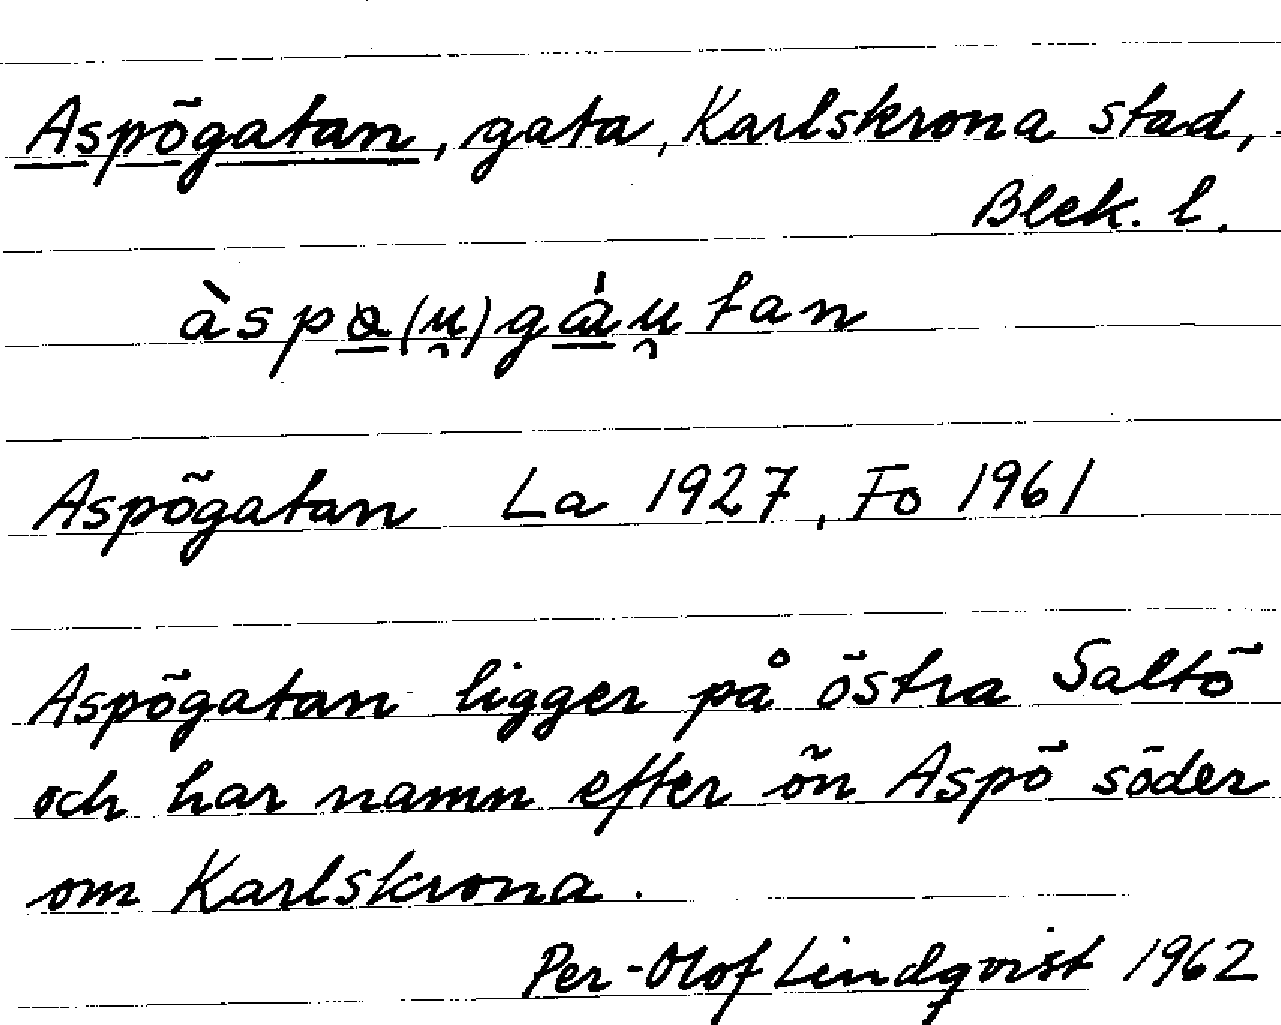 Aspögatan, gata, Karlskrona stad,
Blek. l.
àspa(u̯)gáu̯tan
Aspögatan La 1927, Fo 1961
Aspögatan ligger på östra Saltö
och har namn efter ön Aspö söder
om Karlskrona.
Per-Olof Lindqvist 1962